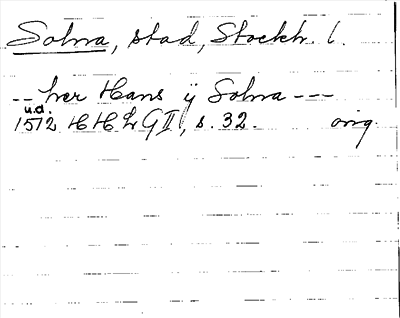 Solna, stad, Stockh. l.
-- her Hans ÿ Solna ---
u.d.
1512 HHLG II, s. 32. orig.